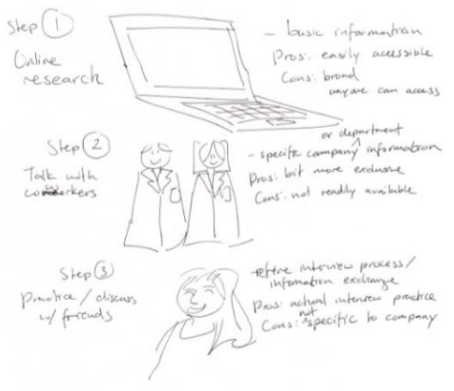 Step 1
Online
research
- basic information
Pros: easily accessible
Cons: broad
anyone can access
Step 2
Talk with
coworkers
or department
- specific company information
Pros: bit more exclusive
Cons: not readily available
Step 3
Practice / discuss
w/ friends
- refine interview process/
information exchange
Pros: actual interview practice
not
Cons: specific to company